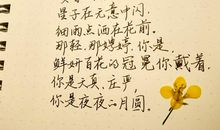 星子在无意中闪，
细雨点洒在花前。
那轻，那娉婷，你是，
鲜妍百花的冠冕你戴着，
你是天真，庄严，
你是夜夜的月圆。